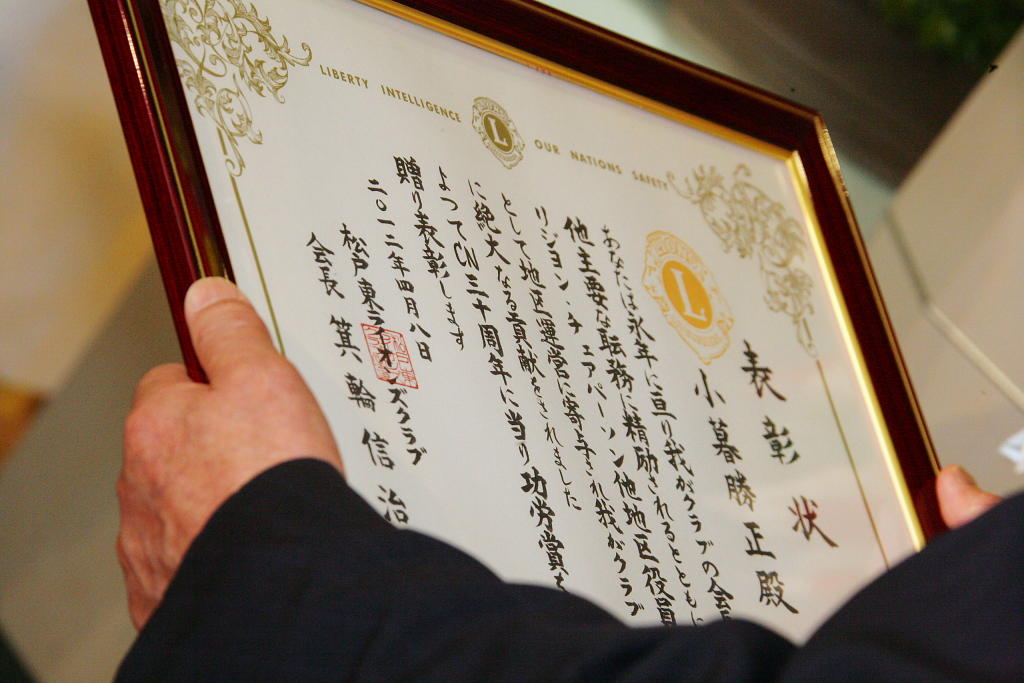 LIBERTY INTELLIGENCE
OUR NATIONS SAFETY
L
L
表彰状
小暮勝正殿
あなたは永年に亘り我がクラブの会
他主要な転務に精励されるとともに
リジョン・チェアパーソン他地区役員
として地区運営に寄与され我がクラブ
に絶大なる貢献をされました
よってCN三十周年に当り功労賞を
贈り表彰します
二〇一三年四月八日
松戸東ライオンズクラブ
会長 箕輪信治